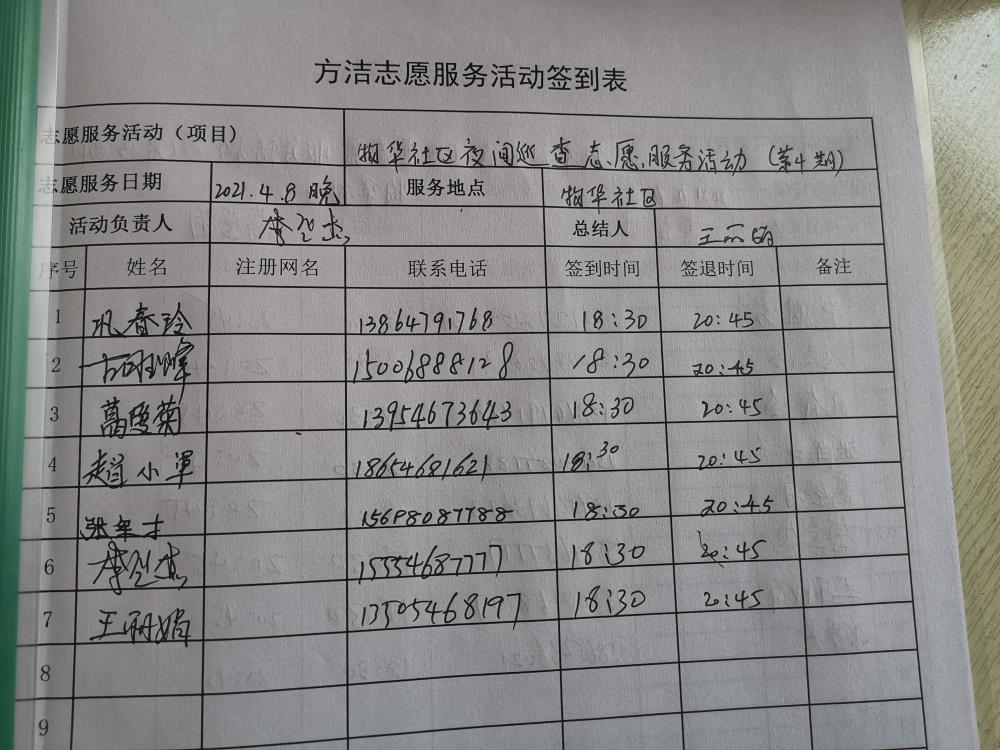 方洁志愿服务活动签到表
志愿服务活动（项目） 物华社区夜间巡查志愿服务活动（第4期）
志愿服务日期 2021.4.8晚 服务地点 物华社区
活动负责人 李 杰 总结人 王丽娟
序号 姓名 注册网名 联系电话 签到时间 签退时间 备注
1 巩春玲 13864791768 18:30 20:45
2 15006888128 18:30 20:45
3 葛 菊 13954673643 18:30 20:45
4 赵小军 18654681621 18:30 20:45
5 张军才 15698087788 18:30 20:45
6 李 杰 15554687777 18:30 20:45
7 王丽娟 13505468197 18:30 20:45
8
9